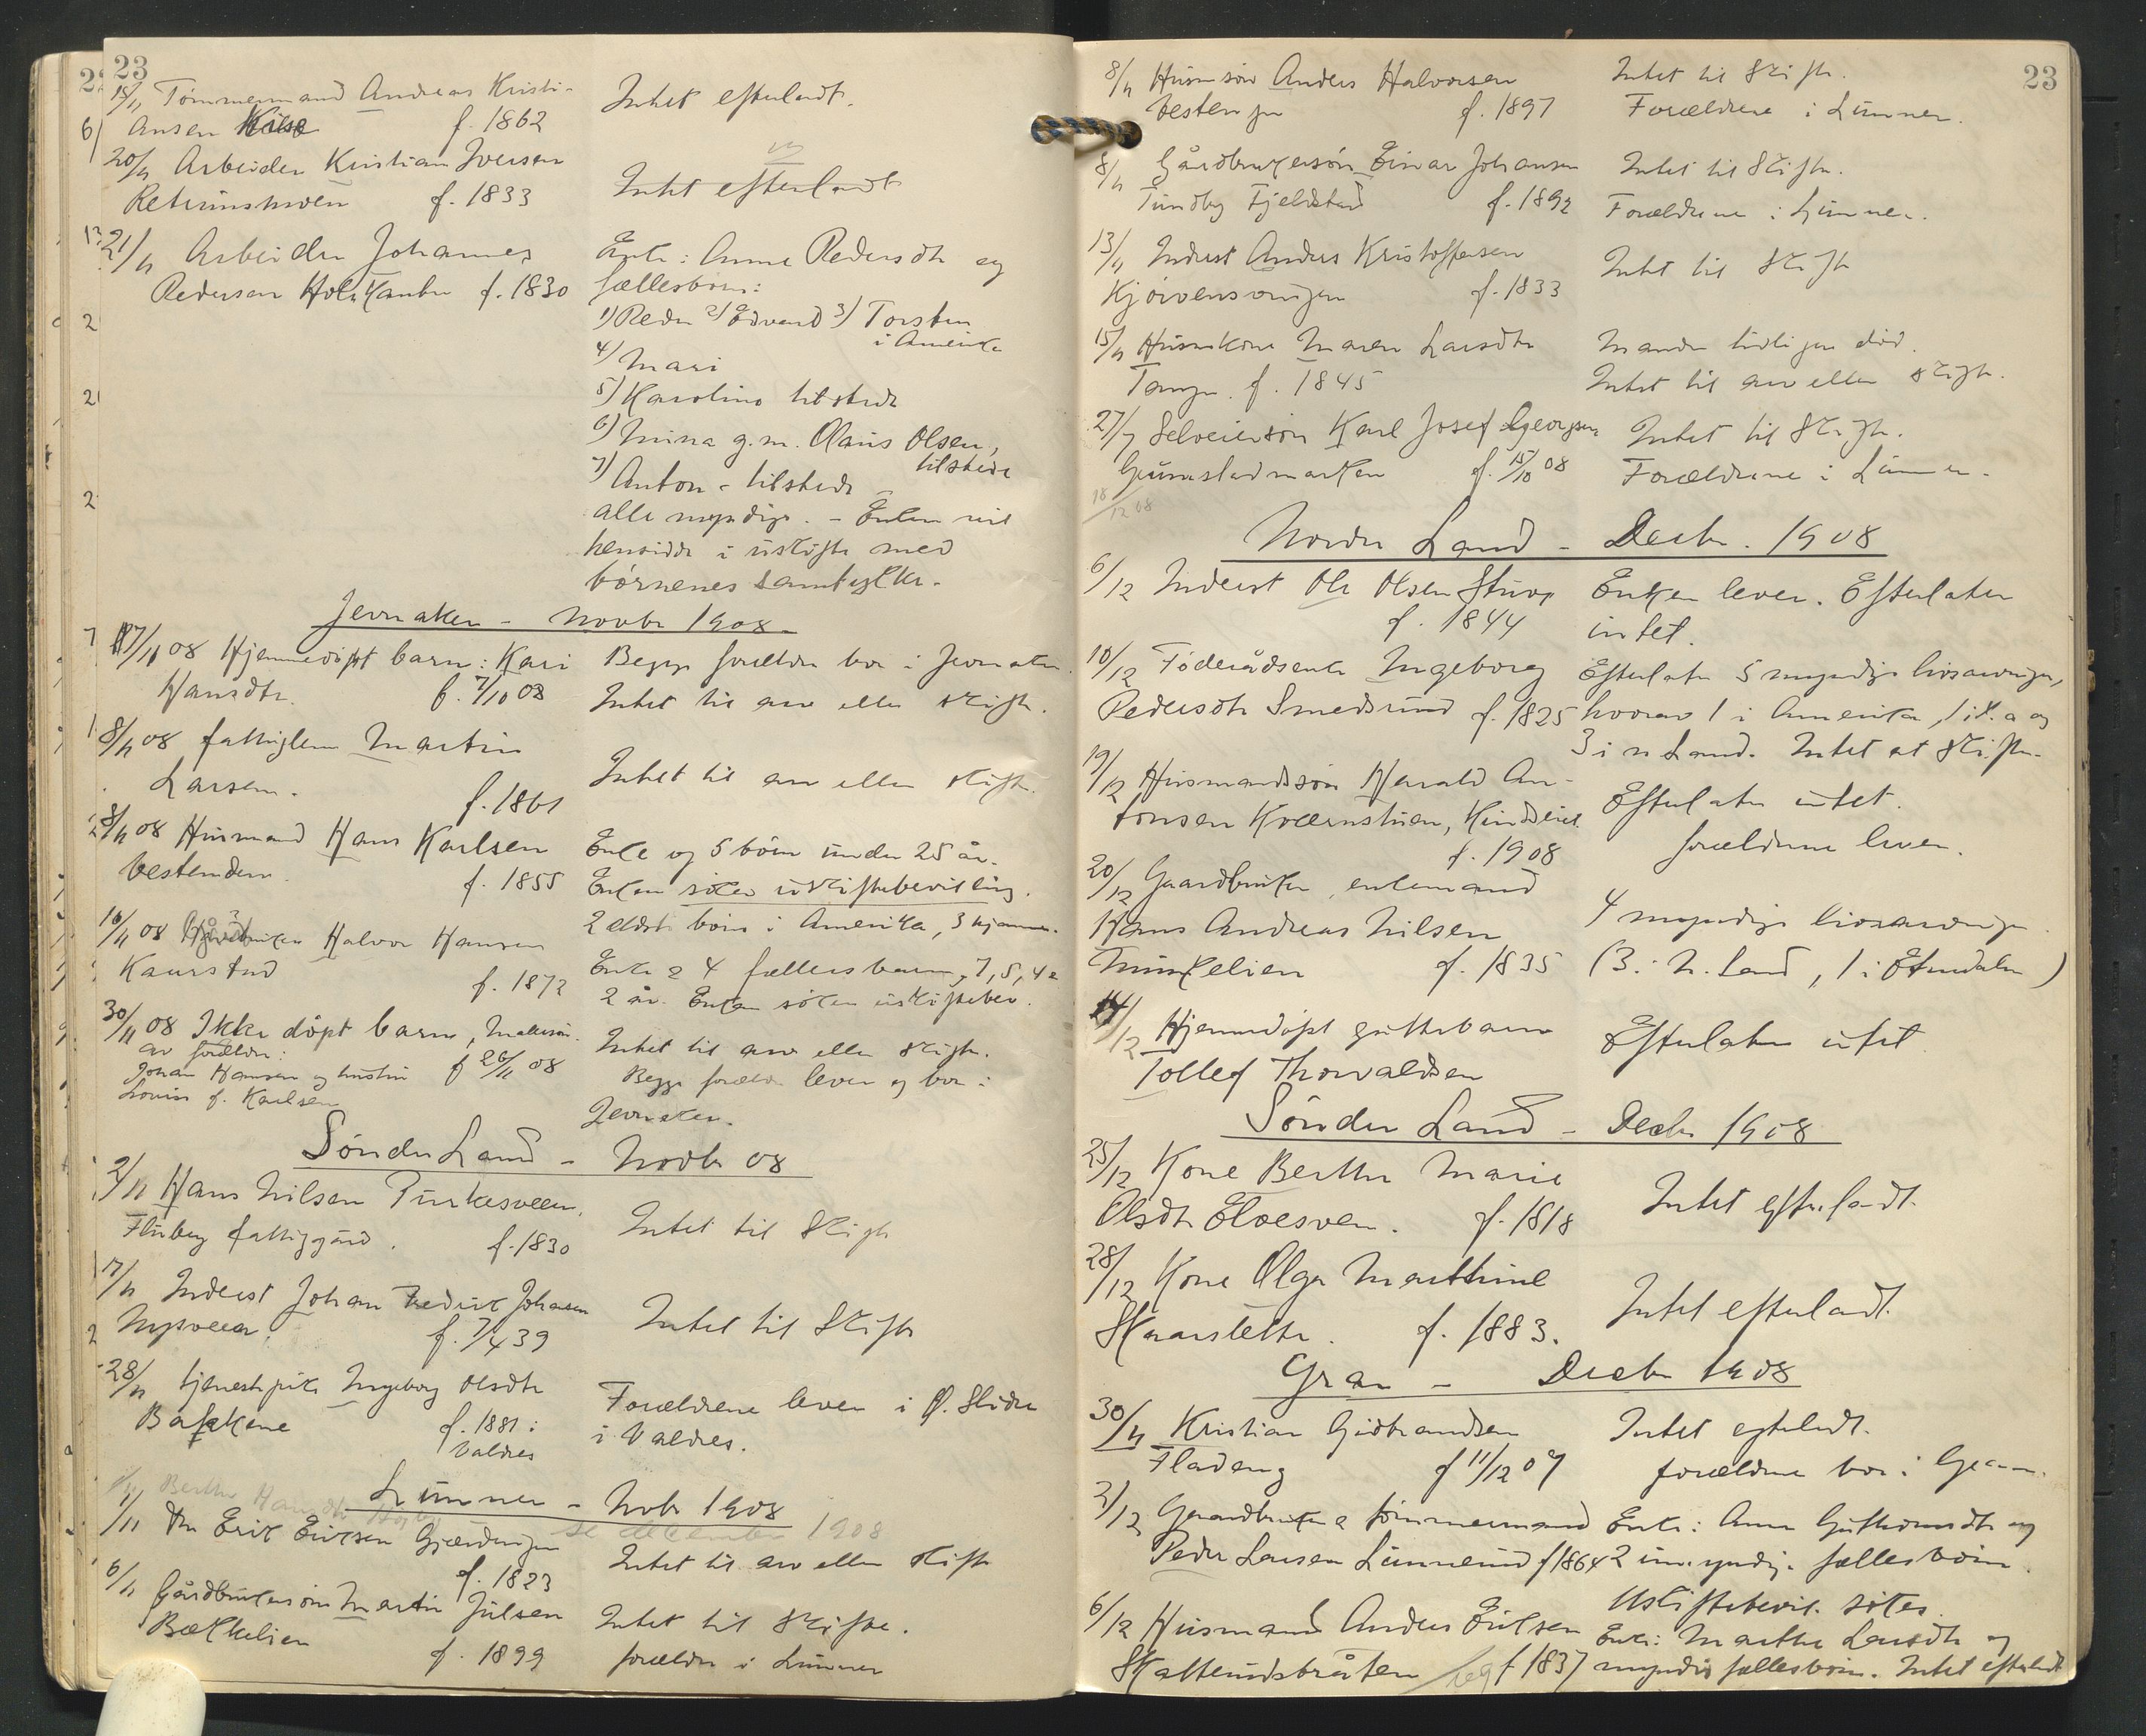 23
15/11 Tömmermand Andreas Kristi- Intet efterladt.
ansen f. 1862
20/11 Arbeider Kristian Iversen
f. 1833 Intet efterladt
21/11 Arbeider Johannes Enke: Anne Pedersdtr og
Pedersen f. 1830 fællesbörn:
1) Peder 2) Edvard 3) Torsten
i Amerika
4) Mari
5) Karoline tilstede
6) Mina g.m. Olaus Olsen,
tilstede
7) Anton - tilstede -
alle myndige. - Enken vil
hensidde i uskifte med
börnenes samtykke.
Jevnaker - Novbr 1908
17/11 08 Hjemmedöpt barn: Kari Begge forældre bor i Jevnaker.
Hansdtr. f. 7/10 08 Intet til arv eller skifte.
8/11 08 fattiglem Martin
Larsen. f. 1861 Intet til arv eller skifte.
8/11 08 Husmand Hans Karlsen Enke og 5 börn under 25 år.
Vestenden f. 1855 Enken söker uskiftebevilling.
2 eldste börn i Amerika, 3 hjemme.
16/11 08 Halvor Hansen
Kaurstad f. 1872 Enke & 4 fællesbarn, 7, 5, 4 &
2 år. Enken söker uskiftebev.
30/11 08 Ikke döpt barn, Intet til arv eller skifte.
av forældre: f 26/11 08
Johan Hansen og hustru Begge forældre lever og bor i
Lovise f. Karlsen Jevnaker.
Sönder Land - Novbr 08
2/11 Hans Nilsen Purkesveen,
Fluberg fattiggård. f. 1830 Intet til Skifte
17/11 Inderst Johan Fredrik Johansen
f. 7/4 39 Intet til Skifte
28/11 tjenestepike Ingeborg Olsdtr Forældrene lever i Ö. Slidre
f. 1881 i i Valdres.
Valdres
Lunner - Novbr 1908
Berthe Hansdtr se december 1908
1/11 Erik Eriksen
f. 1823 Intet til arv eller skifte
6/11 Gårdbrukersön Martin Julsen Intet til skifte.
Bækkelien f. 1899 forældre i Lunner
23
8/11 Husmsön Anders Halvorsen Intet til Skifte.
f. 1897 Forældrene i Lunner.
8/11 Gårdbrukersön Einar Johansen Intet til Skifte.
Fjeldstad f. 1892 Forældrene i Lunner.
13/11 Inderst Anders Kristoffersen Intet til Skifte
f. 1833
15/11 Huskone Maren Larsdtr Manden tidligere död.
f. 1845 Intet til arv eller skifte.
27/11 Selveiersön Karl Josef Georgsen Intet til Skifte.
Grinastadmarken f. 15/10 08 Forældrene i Lunner.
18/12 08
Nordre Land - Decbr. 1908
6/12 Inderst Ole Olsen Enken lever. Efterlater
f. 1844 intet.
10/12 Föderådsenke Ingeborg Efterlater 5 myndige livsarvinger,
Pedersdtr Smedsrud f. 1825 hvorav 1 i Amerika, og
3 i n. Land. Intet at skifte.
19/12 Husmandssön Harald An-
tonsen Kværnstuen, f. 1908 Efterlater intet.
forældrene lever.
20/12 Gaardbruker, enkemand
Hans Andreas Nilsen 4 myndige livsarvinger
f. 1835 (3 i N. Land, 1 i Etnedalen)
14/12 Hjemmedöpt guttebarn Efterlater intet
Tollef Thorvaldsen
Sönder Land - Decbr 1908
25/12 Kone Berthe Marie
Olsdtr f. 1818 Intet efterladt.
28/12 Kone Olga Marthine
f. 1883. Intet efterladt.
Gran - Decbr 1908
30/11 Kristian Gudbrandsen Intet efterladt.
Fladeng f 11/12 07 forældrene bor i Gran.
2/12 Gaardbruker & tömmermand Enke: Anne og
Peder Larsen Lunnerud f 1864 2 umyndige fællesbörn.
Uskiftebevil. sökes.
6/12 Husmand Anders Eriksen Enke: Marthe Larsdtr og
f 1837 myndige fællesbörn. Intet efterladt